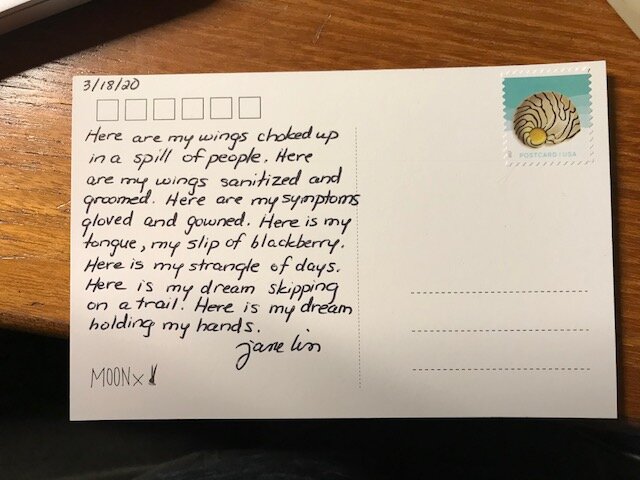 3/18/20
Here are my wings choked up
in a spill of people. Here
are my wings sanitized and
groomed. Here are my symptoms
gloved and gowned. Here is my
tongue, my slip of blackberry.
Here is my strangle of days.
Here is my dream skipping
on a trail. Here is my dream
holding my hands.
jane lin
MOON x
POSTCARD | USA